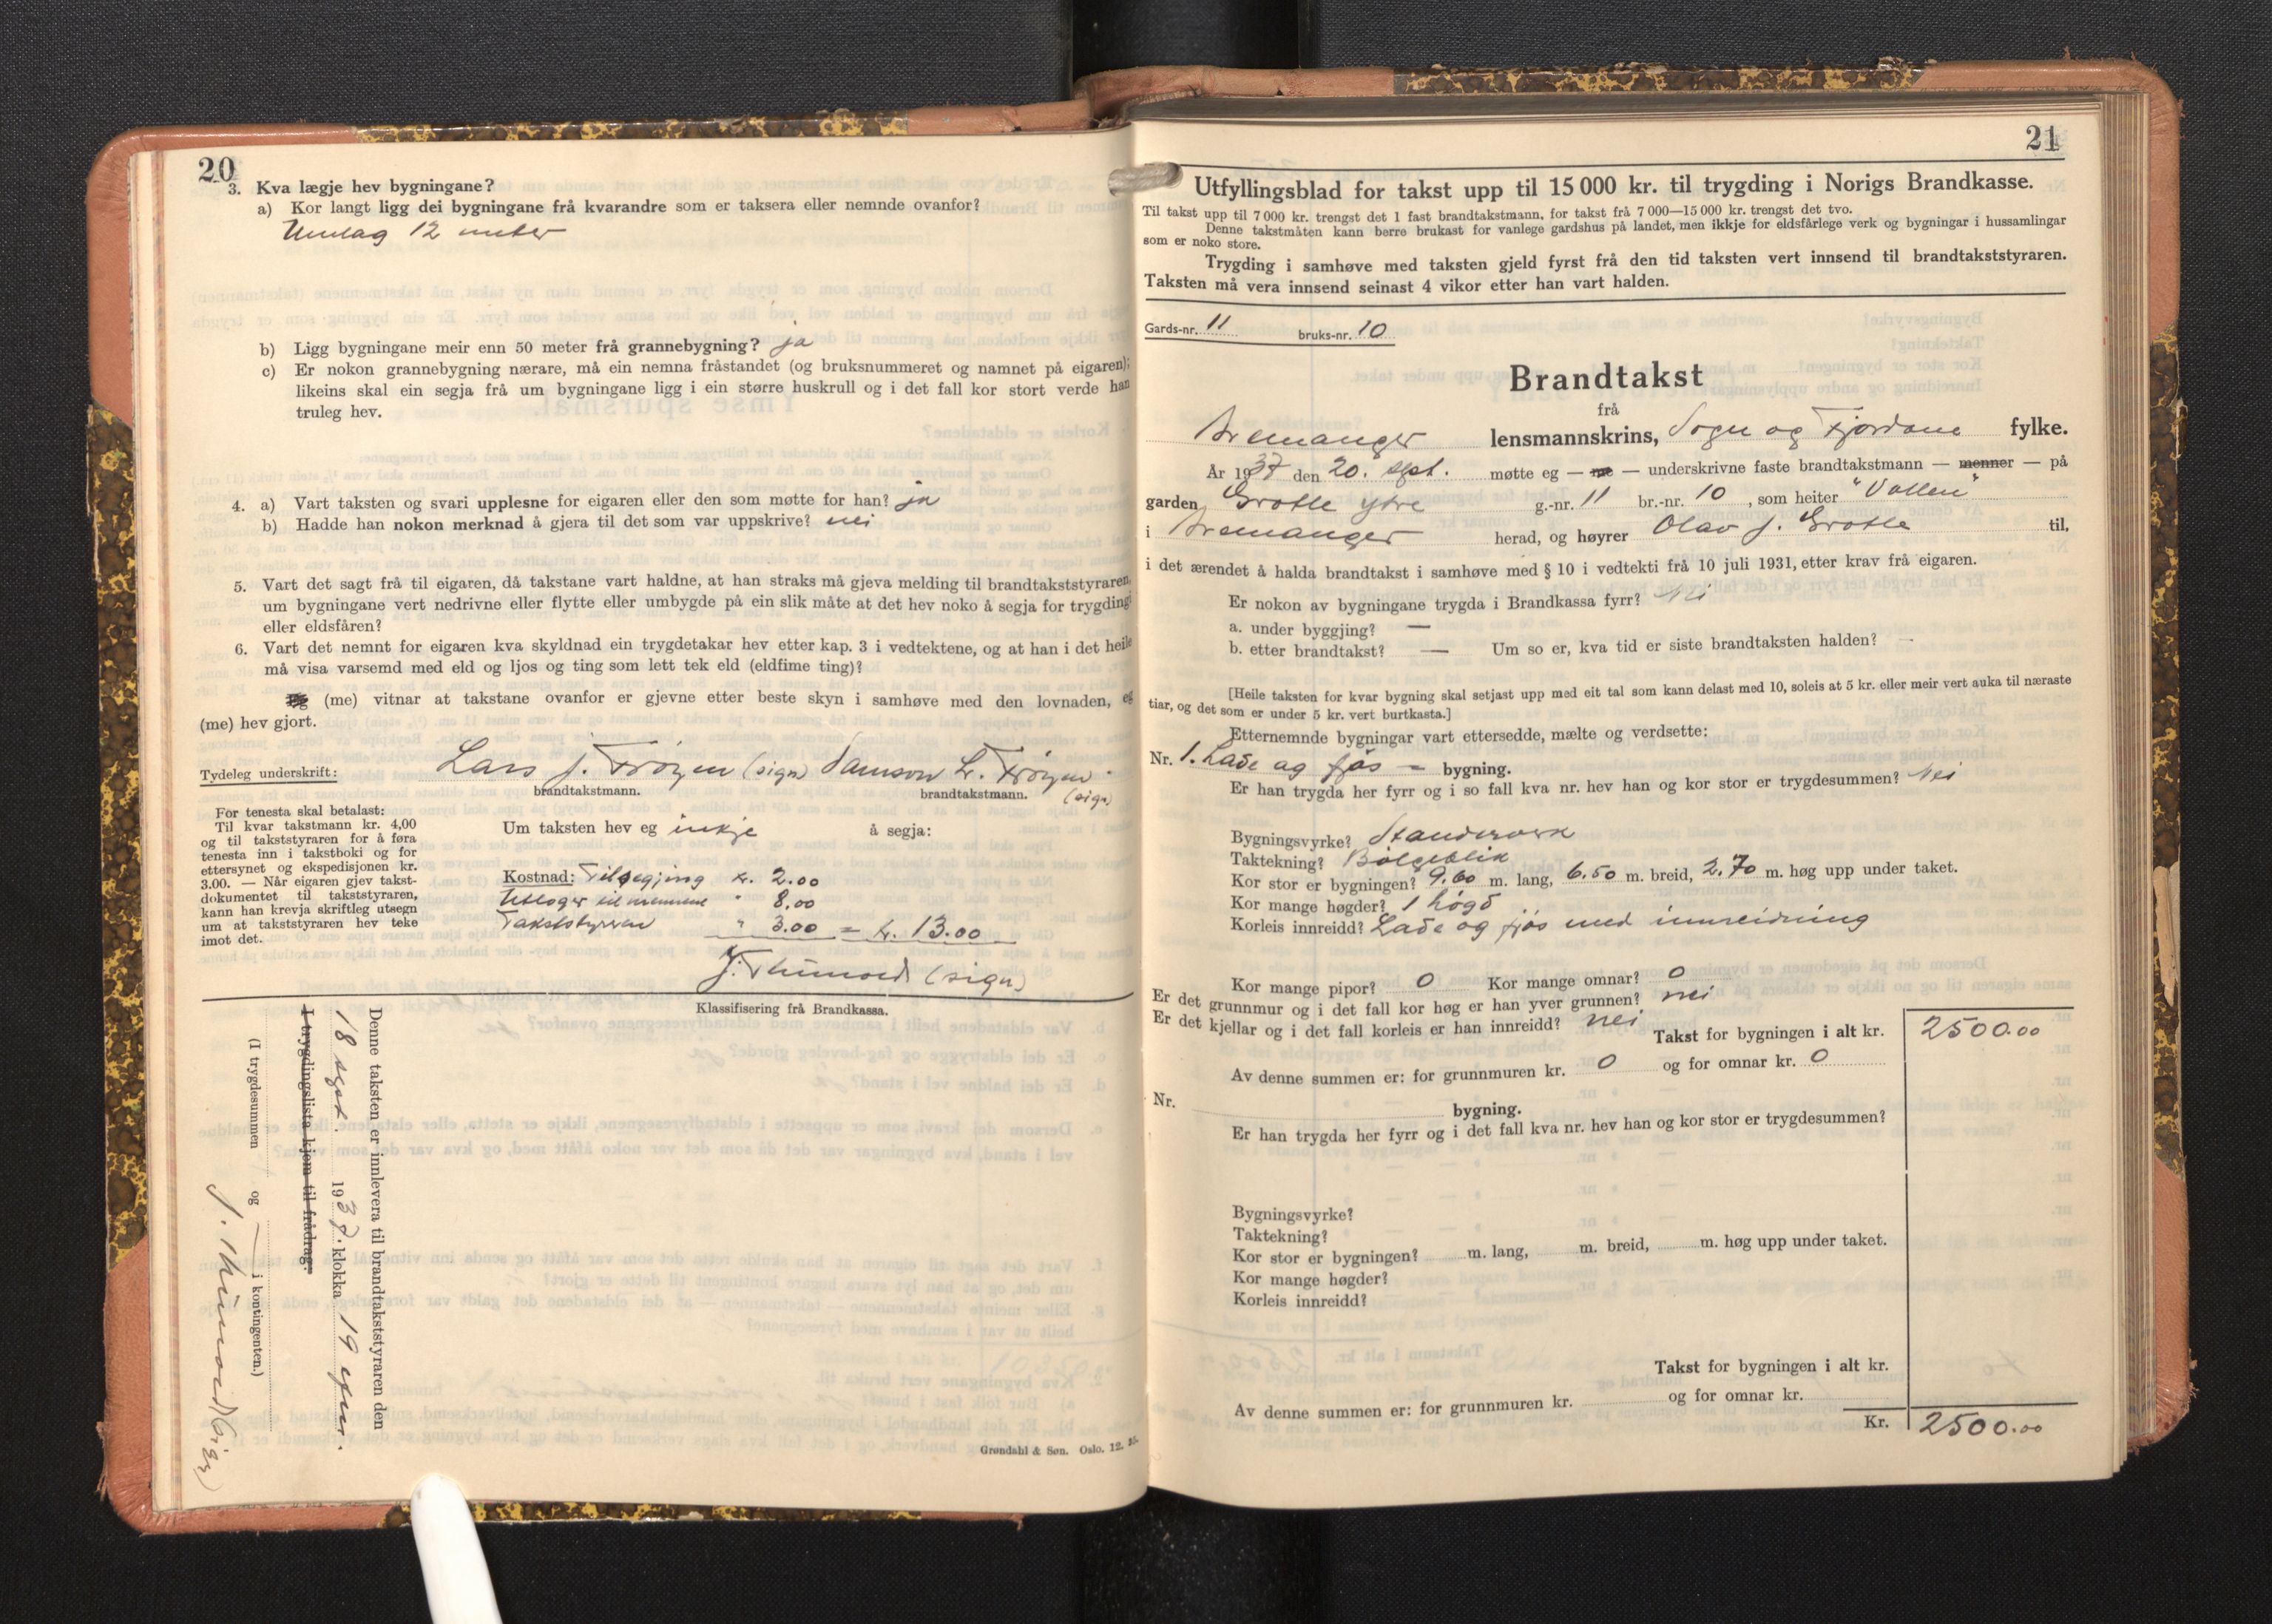 20
3. Kva lægje hev bygningane?
a) Kor langt ligg dei bygningane frå kvarandre som er taksera eller nemnde ovanfor?
Umlag 12 meter
b) Ligg bygningane meir enn 50 meter frå grannebygning? ja
c) Er nokon grannebygning nærare, må ein nemna fråstandet (og bruksnummeret og namnet på eigaren);
likeins skal ein segja frå um bygningane ligg i ein større huskrull og i det fall kor stort verde han
truleg hev.
4. a) Vart taksten og svari upplesne for eigaren eller den som møtte for han? ja
b) Hadde han nokon merknad å gjera til det som var uppskrive? nei
5. Vart det sagt frå til eigaren, då takstane vart haldne, at han straks må gjeva melding til brandtakststyraren,
um bygningane vert nedrivne eller flytte eller umbygde på ein slik måte at det hev noko å segja for trygdingi
eller eldsfåren?
6. Vart det nemnt for eigaren kva skyldnad ein trygdetakar hev etter kap. 3 i vedtektene, og at han i det heile
må visa varsemd med eld og ljos og ting som lett tek eld (eldfime ting)?
Eg (me) vitnar at takstane ovanfor er gjevne etter beste skyn i samhøve med den lovnaden, eg
(me) hev gjort.
Tydeleg underskrift: Lars J. Frøyen (sign) Samson L. Frøyen
brandtakstmann. brandtakstmann. (sign)
For tenesta skal betalast:
Til kvar takstmann kr. 4,00
og til takststyraren for å føra
tenesta inn i takstboki og for
ettersynet og ekspedisjonen kr.
3.00. — Når eigaren gjev takst-
dokumentet til takststyraren,
kann han krevja skriftleg utsegn
um at takststyraren hev teke
imot det.
Um taksten hev eg inkje å segja:
Kostnad: Tilsegjing kr. 2.00
Utlogor til mennene " 8.00
Takststyraren " 3.00 = kr. 13.00
J. Thunold (sign)
Klassifisering frå Brandkassa.
Denne taksten er innlevera til brandtakststyraren den
18 sept. 1937. klokka 19 efm.
I trygdingslista kjem til frådrag:
(I trygdesummen og — i kontingenten.)
J. Thunold (sign)
Grøndahl & Søn. Oslo. 12. 35.
21
Utfyllingsblad for takst upp til 15 000 kr. til trygding i Norigs Brandkasse.
Til takst upp til 7 000 kr. trengst det 1 fast brandtakstmann, for takst frå 7 000—15 000 kr. trengst det tvo.
Denne takstmåten kann berre brukast for vanlege gardshus på landet, men ikkje for eldsfårlege verk og bygningar i hussamlingar
som er noko store.
Trygding i samhøve med taksten gjeld fyrst frå den tid taksten vert innsend til brandtakststyraren.
Taksten må vera innsend seinast 4 vikor etter han vart halden.
Gards-nr. 11 bruks-nr. 10
Brandtakst
frå
Bremanger lensmannskrins, Sogn og Fjordane fylke.
År 1937 den 20. sept. møtte eg — me — underskrivne faste brandtakstmann — menner — på
garden Grotle ytre g.-nr. 11 br.-nr. 10, som heiter "Vollen"
i Bremanger herad, og høyrer Olav J. Grotle til,
i det ærendet å halda brandtakst i samhøve med § 10 i vedtekti frå 10 juli 1931, etter krav frå eigaren.
Er nokon av bygningane trygda i Brandkassa fyrr? Nei
a. under byggjing? —
b. etter brandtakst? — Um so er, kva tid er siste brandtaksten halden? —
[Heile taksten for kvar bygning skal setjast upp med eit tal som kann delast med 10, soleis at 5 kr. eller meir vert auka til næraste
tiar, og det som er under 5 kr. vert burtkasta.]
Etternemnde bygningar vart ettersedde, mælte og verdsette:
Nr. 1. Lade og fjøs - bygning.
Er han trygda her fyrr og i so fall kva nr. hev han og kor stor er trygdesummen? Nei
Bygningsvyrke? Standerverk
Taktekning? Bølgeblik
Kor stor er bygningen? 9.60 m. lang, 6.50 m. breid, 2.70 m. høg upp under taket.
Kor mange høgder? 1 høgd
Korleis innreidd? Lade og fjøs med innreidning
Kor mange pipor? 0 Kor mange omnar? 0
Er det grunnmur og i det fall kor høg er han yver grunnen? nei
Er det kjellar og i det fall korleis er han innreidd? nei
Takst for bygningen i alt kr. 2500.00
Av denne summen er: for grunnmuren kr. 0 og for omnar kr. 0
Nr. bygning.
Er han trygda her fyrr og i det fall kva nr. hev han og kor stor er trygdesummen?
Bygningsvyrke?
Taktekning?
Kor stor er bygningen? m. lang, m. breid, m. høg upp under taket.
Kor mange høgder?
Korleis innreidd?
Takst for bygningen i alt kr.
Av denne summen er: for grunnmuren kr. og for omnar kr.
Kr. 2500.00